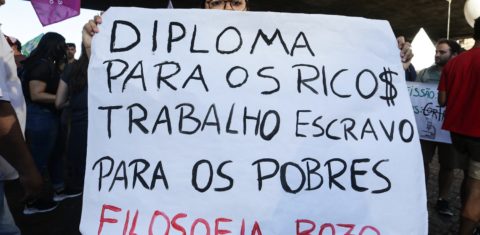 DIPLOMA
PARA OS RICO$
TRABALHO ESCRAVO
PARA OS POBRES
FILOSOFIA BOZO